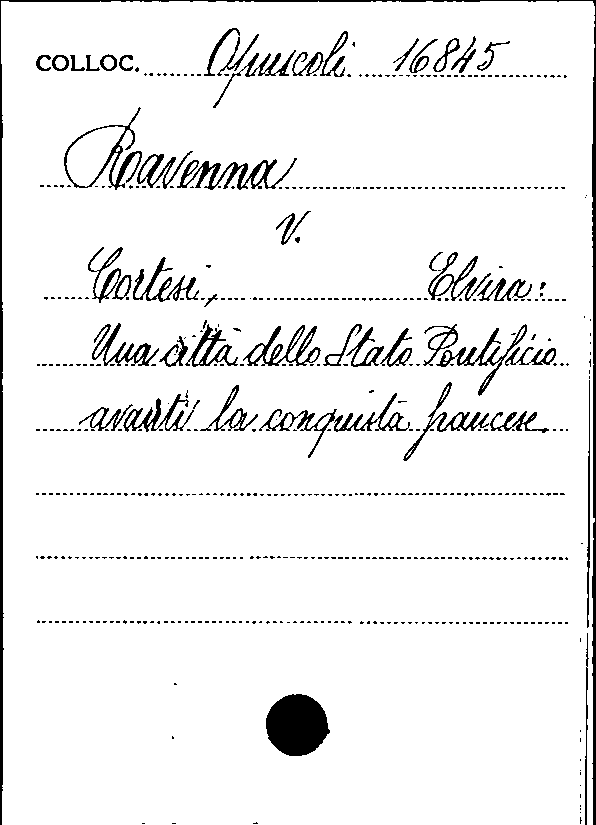 COLLOC. Opuscoli 16845
Ravenna
V.
Cortesi, Elvira:
Una città dello Stato Pontificio
avanti la conquista francese.